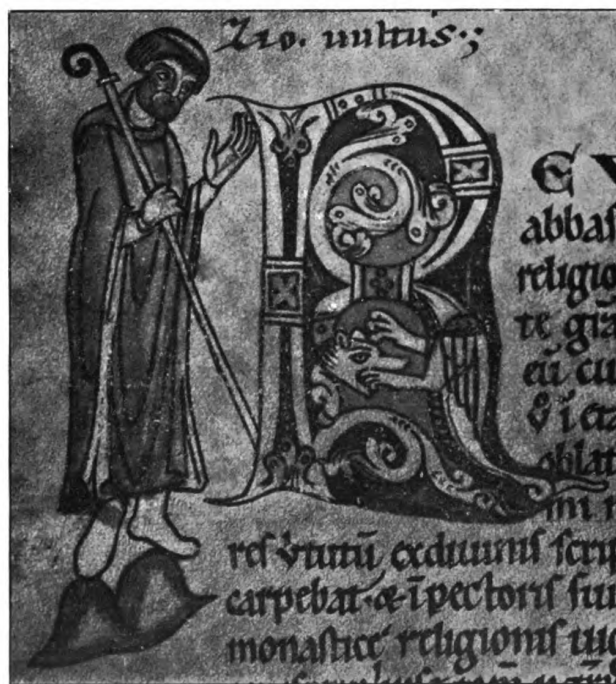 uultus·;
R EV
abbas
religio
te
eū cu
& ī
oblat
mi
res v̓tutū ex diuinis scrip
carpebat· & ī pectoris
monasticę religionis